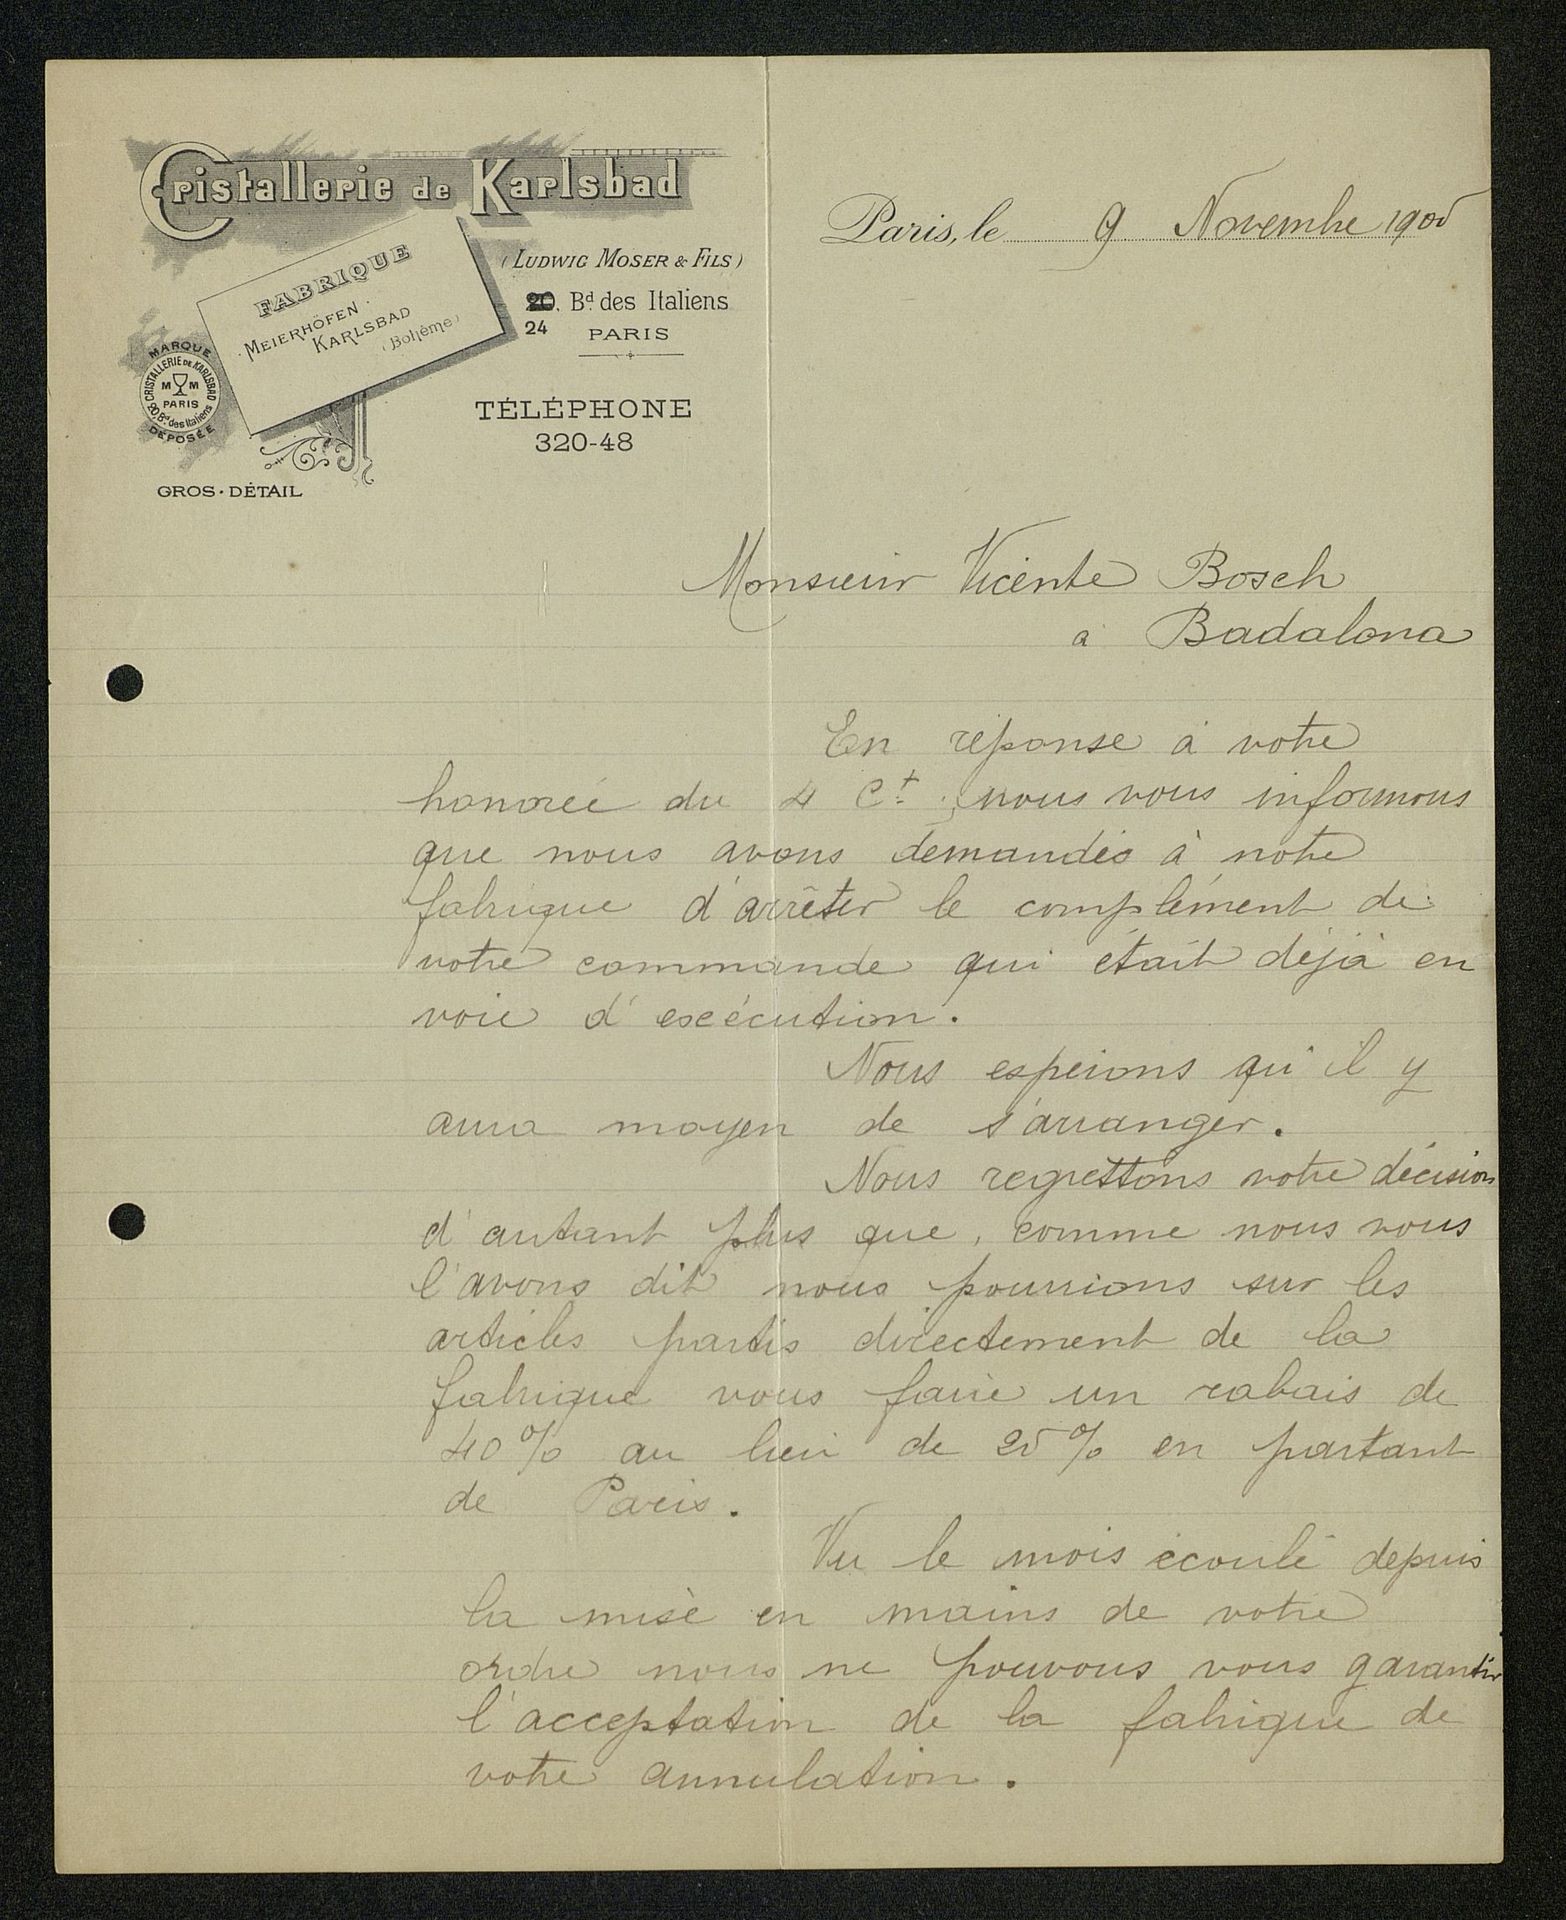 Cristallerie de Karlsbad
(LUDWIG MOSER & FILS)
20, Bd. des Italiens
24 PARIS
FABRIQUE
MEIERHÖFEN.
KARLSBAD
(Bohême)
MARQUE
CRISTALLERIE DE KARLSBAD
M M
PARIS
20, Bd. des Italiens
DÉPOSÉE
TÉLÉPHONE
320-48
GROS·DÉTAIL
Paris, le 9 Novembre 1900
Monsieur Vicente Bosch
à Badalona
En réponse à votre
honorée du 4 Ct. nous vous informons
que nous avons demandés à notre
fabrique d'arrêter le complément de
votre commande qui était déjà en
voie d'exécution.
Nous espérons qu'il y
aura moyen de s'arranger.
Nous regrettons votre décision
d'autant plus que, comme nous vous
l'avons dit nous pourrions sur les
articles partis directement de la
fabrique vous faire un rabais de
40% au lieu de 25% en partant
de Paris.
Vu le mois écoulé depuis
la mise en mains de votre
ordre nous ne pouvons vous garantir
l'acceptation de la fabrique de
votre annulation.